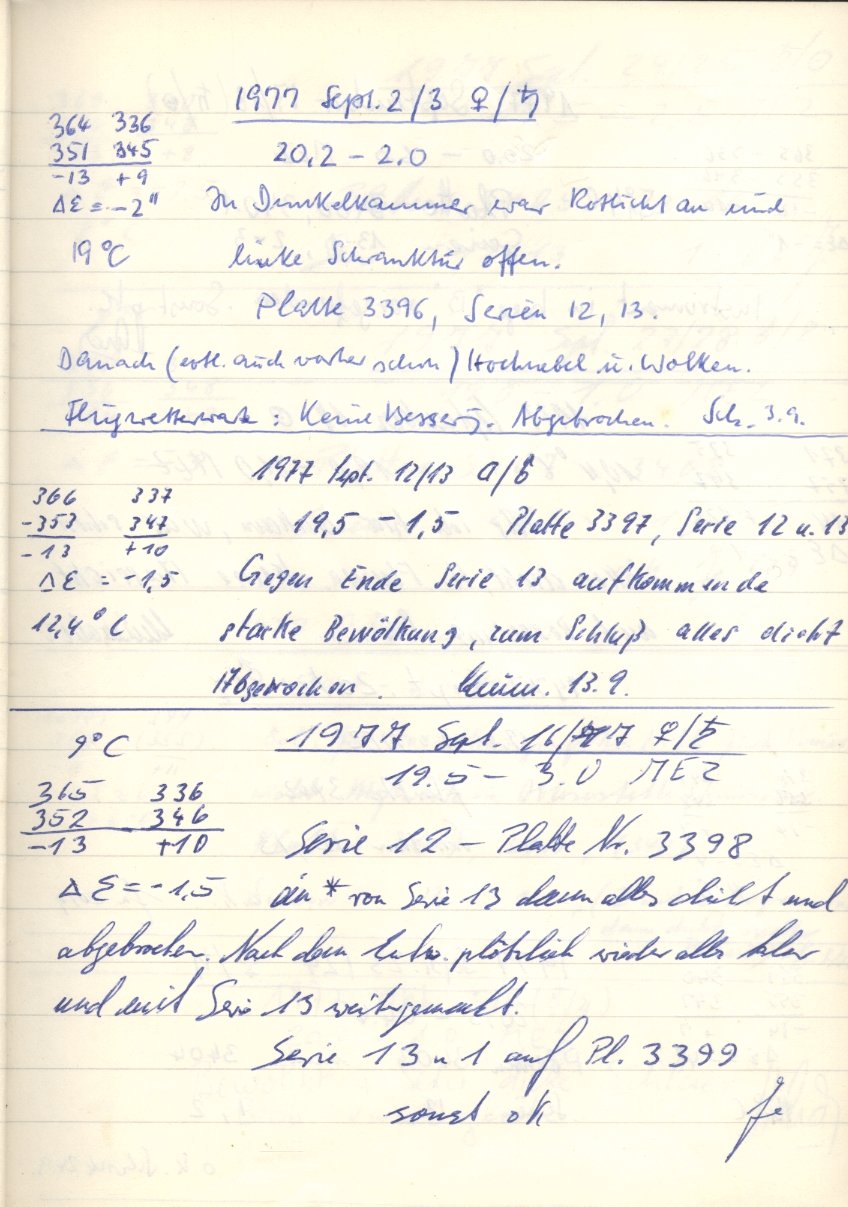 1977 Sept. 2/3 ♀/♄
364 336
351 345
20,2 – 2.0
-13 +9
ΔΣ = -2"
In Dunkelkammer war Rotlicht an und
19°C
linke Schranktür offen.
Platte 3396, Serien 12, 13.
Danach (evtl. auch vorher schon) Hochnebel u. Wolken.
Flugwetterwarte: Keine Besserg. Abgebrochen. Sch. 3.9.
1977 Sept. 12/13
366 337
-353 347
19,5 – 1,5 Platte 3397, Serie 12 u. 13
-13 +10
ΔΣ = -1,5
Gegen Ende Serie 13 aufkommende
12,4°C
starke Bewölkung, zum Schluß alles dicht
Abgebrochen. 13.9.
1977 Sept. 16/17 ♀/♄
9°C
19.5 – 3.0 MEZ
365 336
352 346
-13 +10
Serie 12 – Platte Nr. 3398
ΔΣ = -1,5
* von Serie 13 dann alles dicht und
abgebrochen. Nach dem plötzlich wieder alles klar
und mit Serie 13 weitergemacht.
Serie 13 u 1 auf Pl. 3399
sonst ok